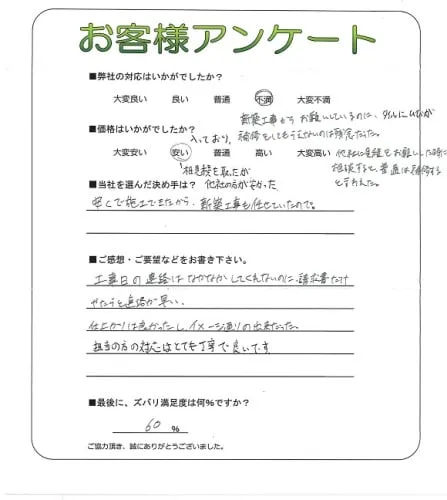 お客様アンケート
■弊社の対応はいかがでしたか?
大変良い 良い 普通 不満 大変不満
新築工事からお願いしているのに、タイルにひびが
入っており、補修をしてもらえないのは残念だった。
■価格はいかがでしたか?
大変安い 安い 普通 高い 大変高い
他社に見積をお願いした時に
相談すると、普通は補修する
と言われた。
相見積を取ったが
他社の方が安かった
■当社を選んだ決め手は?
安くで施工できたから、新築工事も任せていたので。
■ご感想・ご要望などをお書き下さい。
工事日の連絡はなかなかしてくれないのに、請求書だけ
やたらと連絡が早い。
仕上がりは良かったし、イメージ通りの出来だった。
担当の方の対応はとても丁寧で良いです
■最後に、ズバリ満足度は何%ですか?
60 %
ご協力頂き、誠にありがとうございました。